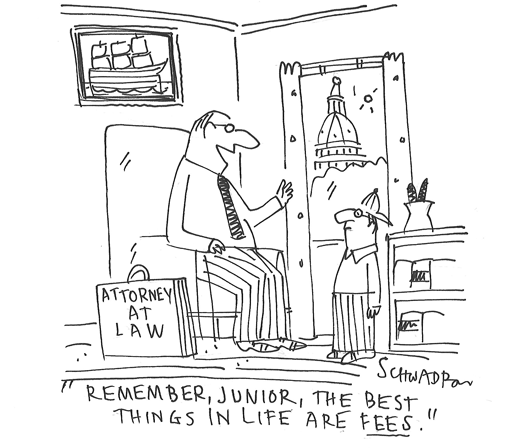 ATTORNEY
AT
LAW
SCHWADRON
"REMEMBER, JUNIOR, THE BEST
THINGS IN LIFE ARE FEES."